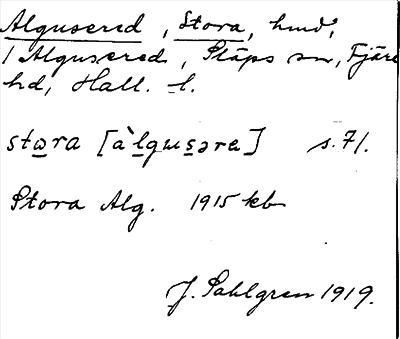 Algusered, Stora, hmd,
1 Algusered, Släps sn, Fjäre
hd, Hall. l.
stωra [àlgusəra] s. 71.
Stora Alg. 1915 kb
J. Sahlgren 1919.